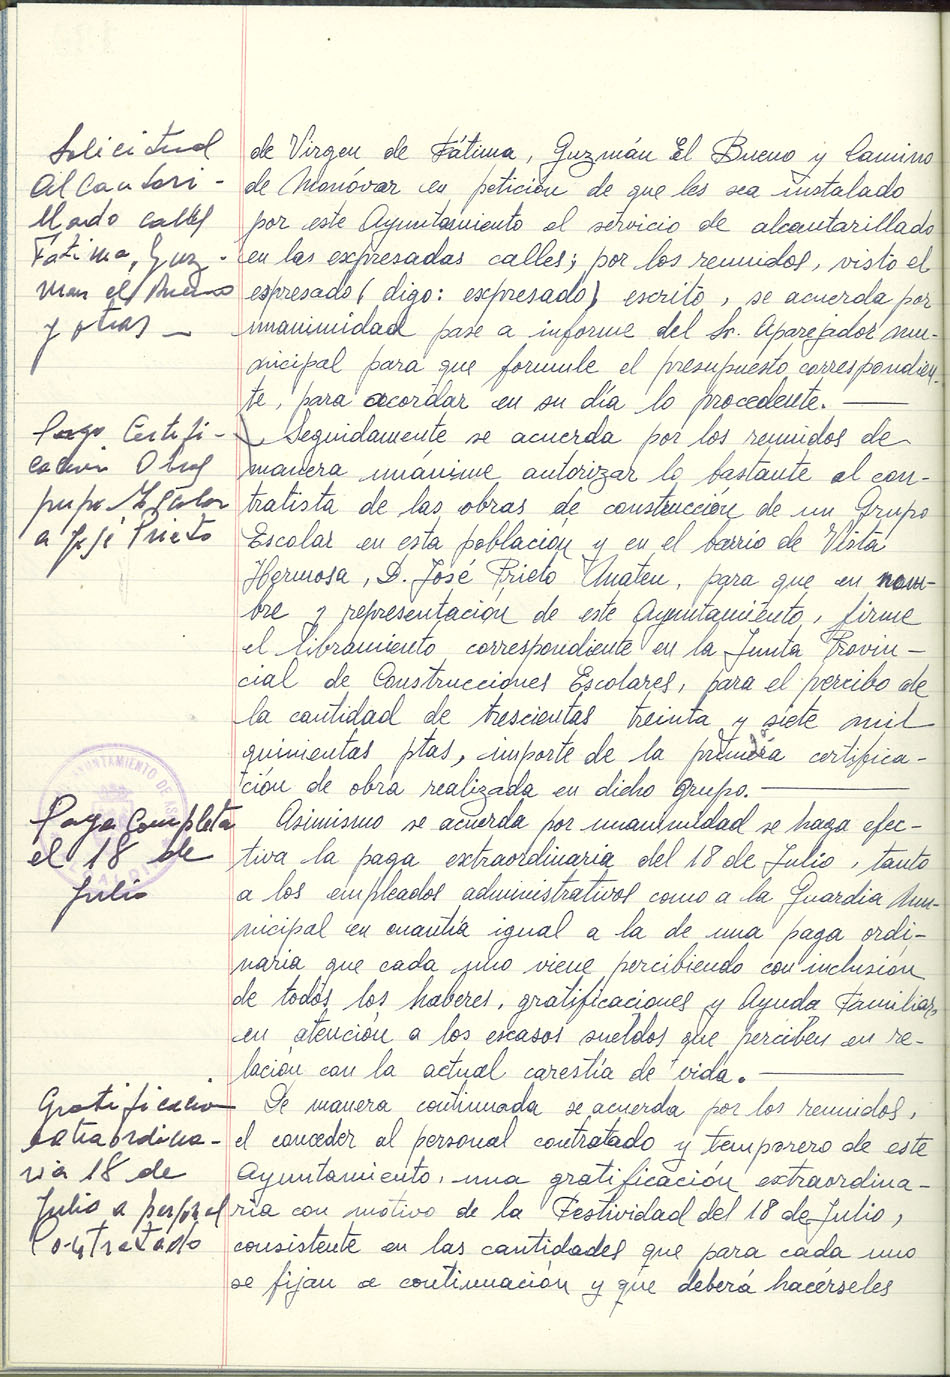 Solicitud
Alcantari-
llado calles
Fátima, Guz-
man el Bueno
y otras —
de Virgen de Fátima, Guzmán El Bueno y Camino
de Monóvar en petición de que les sea instalado
por este Ayuntamiento el servicio de alcantarillado
en las expresadas calles; por los reunidos, visto el
espresado ( digo: expresado) escrito, se acuerda por
unanimidad pase a informe del Sr. Aparejador mu-
nicipal para que formule el presupuesto correspondien-
te, para acordar en su día lo procedente. —
Pago Certifi-
cación Obras
grupo Escolar
a José Prieto
Seguidamente se acuerda por los reunidos de
manera unánime autorizar lo bastante al con-
tratista de las obras de construcción de un Grupo
Escolar en esta población y en el barrio de Vista
Hermosa, D. José Prieto Amateu, para que en nom-
bre y representación de este Ayuntamiento, firme
el libramiento correspondiente en la Junta Provin-
cial de Construcciones Escolares, para el percibo de
la cantidad de trescientas treinta y siete mil
quinientas ptas, importe de la primera certifica-
ción de obra realizada en dicho Grupo. —
AYUNTAMIENTO DE
Paga Completa
el 18 de
Julio
Asimismo se acuerda por unanimidad se haga efec-
tiva la paga extraordinaria del 18 de Julio, tanto
a los empleados administrativos como a la Guardia Mu-
nicipal en cuantía igual a la de una paga ordi-
naria que cada uno viene percibiendo con inclusión
de todos los haberes, gratificaciones y Ayuda Familiar,
en atención a los escasos sueldos que perciben en re-
lación con la actual carestía de vida. —
Gratificación
extraordina-
ria 18 de
Julio a personal
Contratado
De manera continuada se acuerda por los reunidos,
el conceder al personal contratado y temporero de este
Ayuntamiento, una gratificación extraordina-
ria con motivo de la Festividad del 18 de Julio,
consistente en las cantidades que para cada uno
se fijan a continuación y que deberá hacérseles